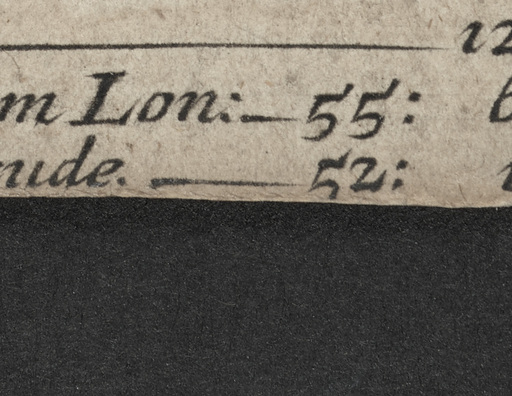 12
m Lon:— 55:
ude. — 52: